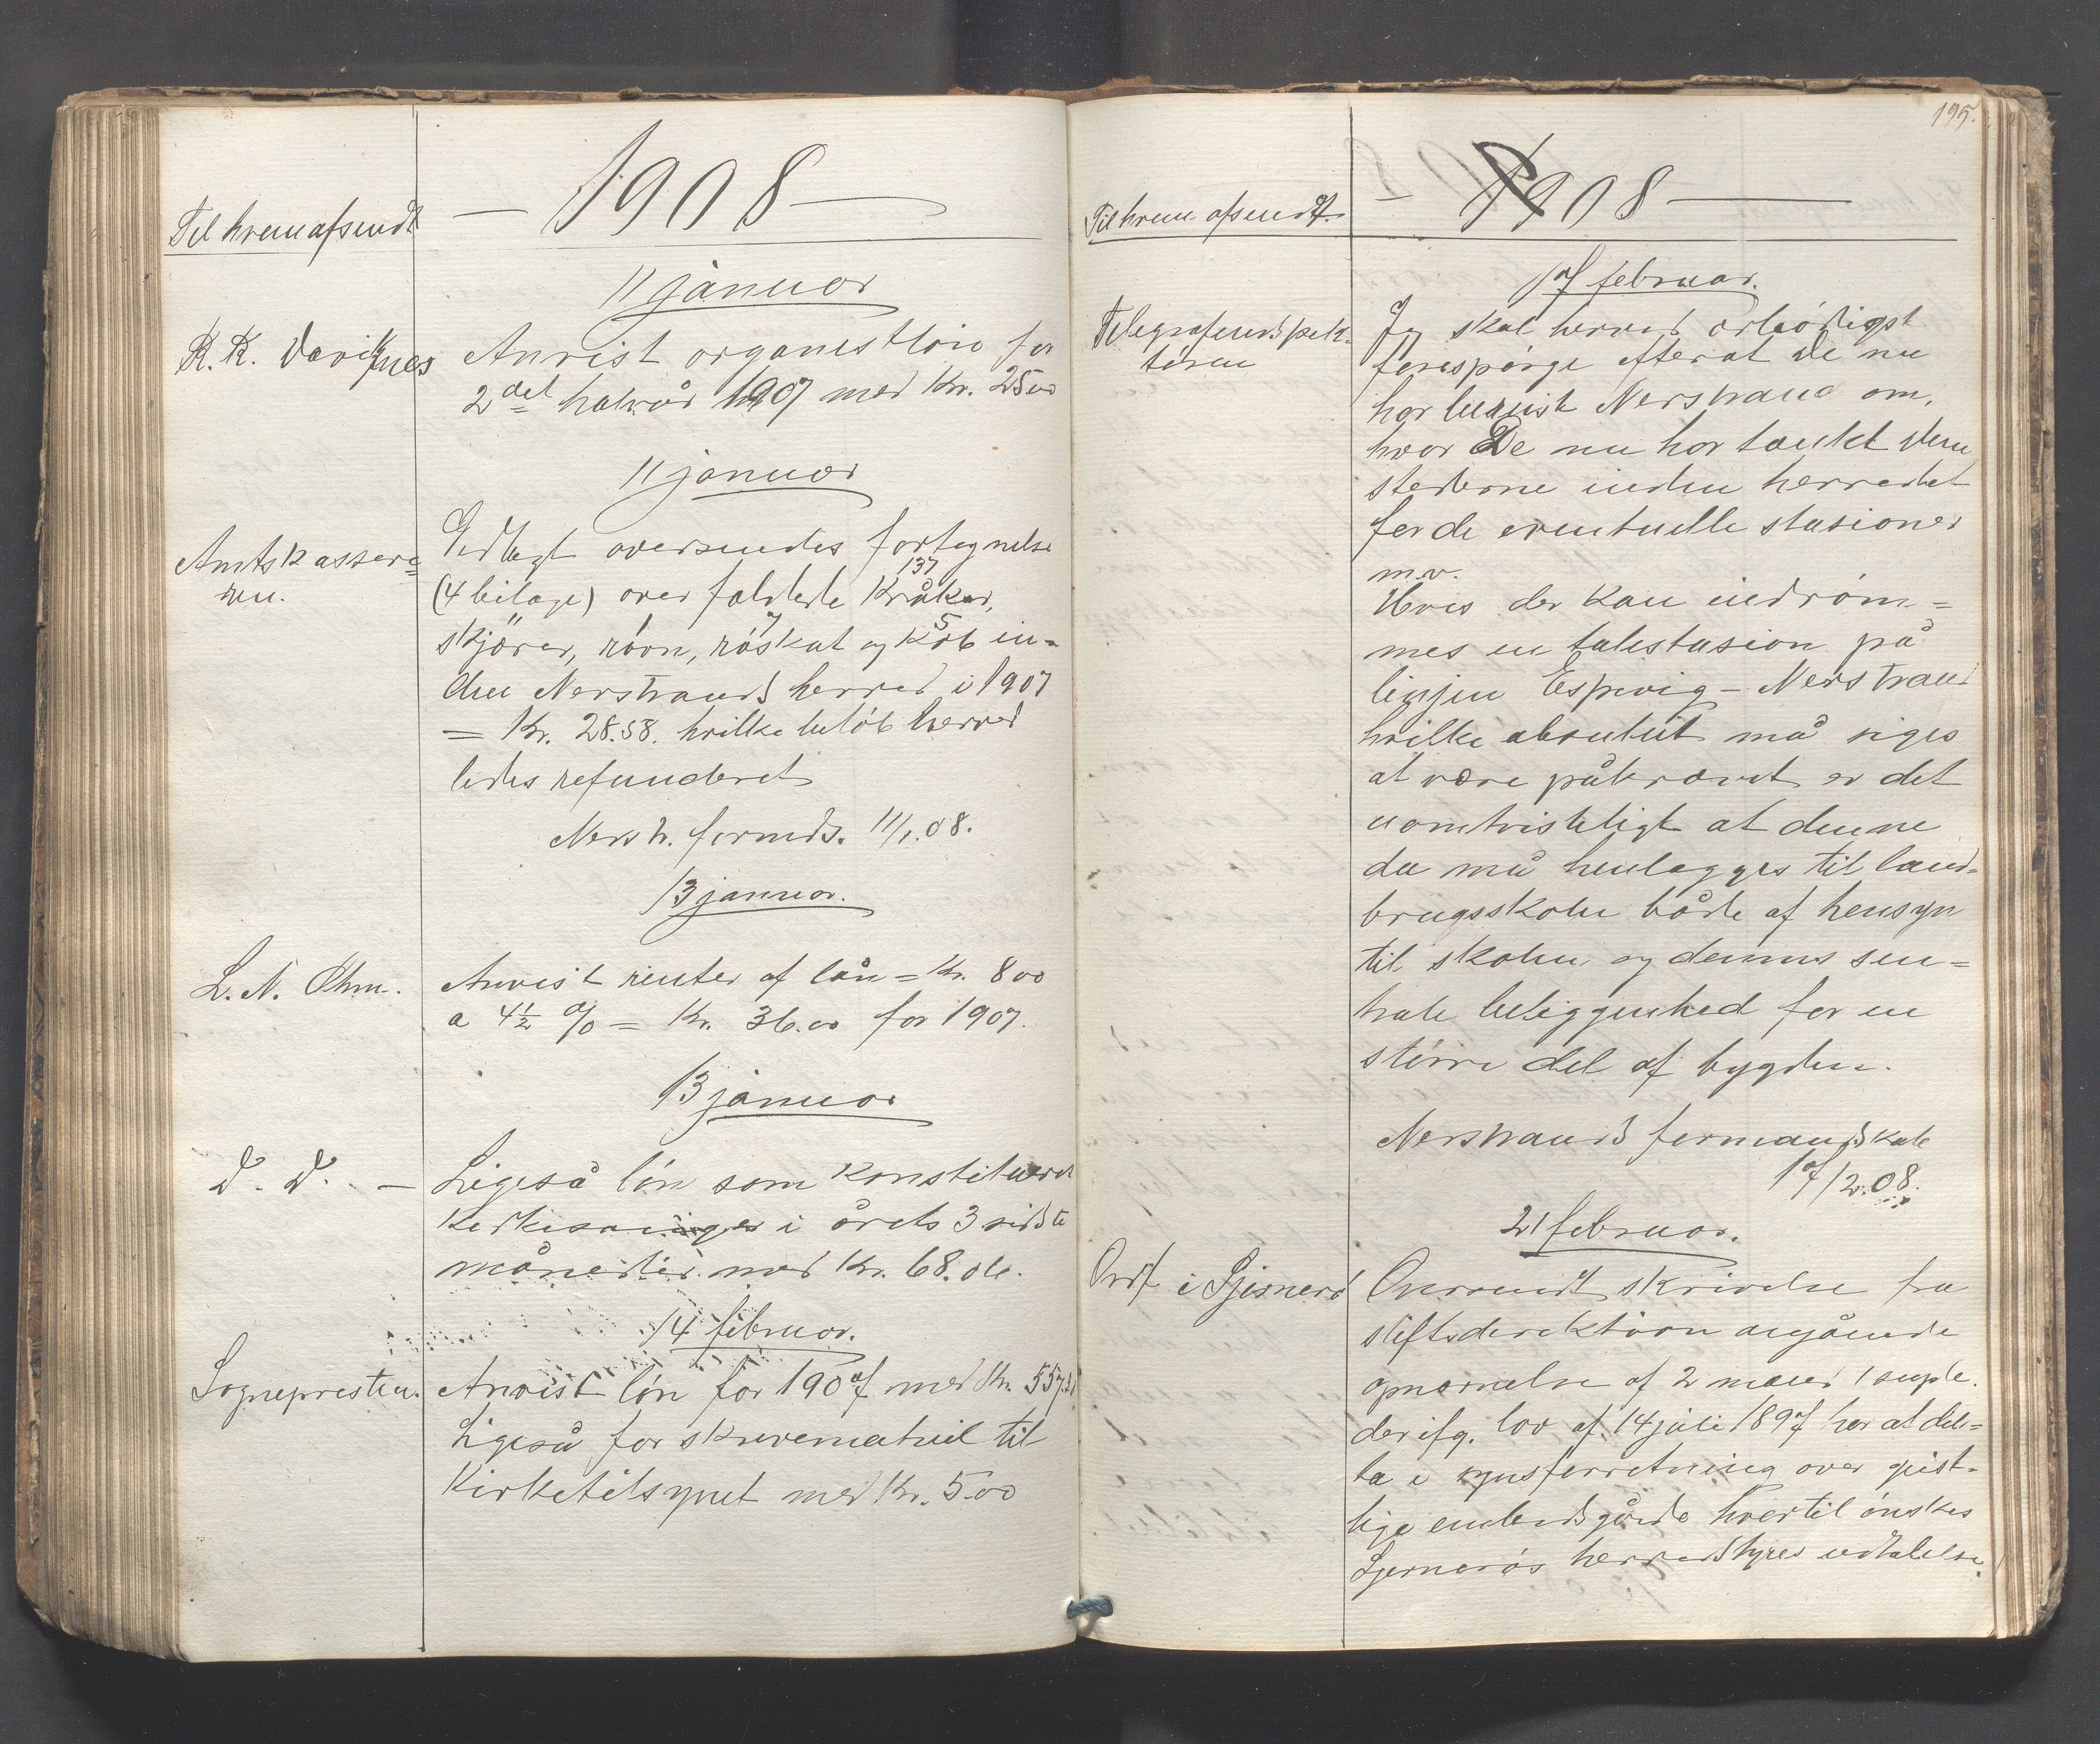 Til hvem afsendt
— 1908 —
11 januar
R. K.
Anvist organistløn for
2det halvår 1907 med Kr. 25 00
11 januar
Amtskassere=
ren.
Vedlagt oversendes fortegnelse
(4 bilage) over faldede 137 kråker,
skjører, ravn, røskat og 5 kob in-
den Nerstrands herred i 1907
= Kr. 28.58. hvilke beløb herved
ledes refunderet
Nerstr. formds. 11/1.08.
13 januar.
L. N.
Anvist renter af lån = Kr. 800
a 4½ % = Kr. 36.00 for 1907.
13 januar
D. D. —
Ligeså løn som konstitueret
kirkesanger i årets 3 sidste
måneder med Kr. 68.
14 februar.
Sognepresten.
Anvist løn for 1907 med Kr.
Ligeså for skrivematriel til
Kirketilsynet med Kr. 5.00
195.
Til hvem afsendt.
– 1908 —
17 februar.
Telegrafinspek-
tøren
Jeg skal herved ærbødigst
forespørge efterat De nu
har bereist Nerstrand om,
hvor De nu har tænkt Dem
stederne inden herredet
for de eventuelle stasioner
m.v.
Hvis der kan indrøm=
mes en talestasion på
linjen Espevig – Nerstrand
hvilke absolut må siges
at være påkrævet er det
uomtvisteligt at denne
da må henlægges til land-
brugsskolen både af hensyn
til skolen og dennes sen=
trale beliggenhed for en
større del af bygden.
Nerstrands formandskab
17/2.08.
21 februar.
Ordf. i Sjernerø
Oversendt skrivelse fra
stiftsdirektøren angående
opnævnelse af 2 mænd 1 suple.
der ifg. lov af 14 juli 1897 har at del=
ta i synsforretning over geist-
lige embedsgårde hvortil ønskes
Sjernerøs herredstyres udtalelse.